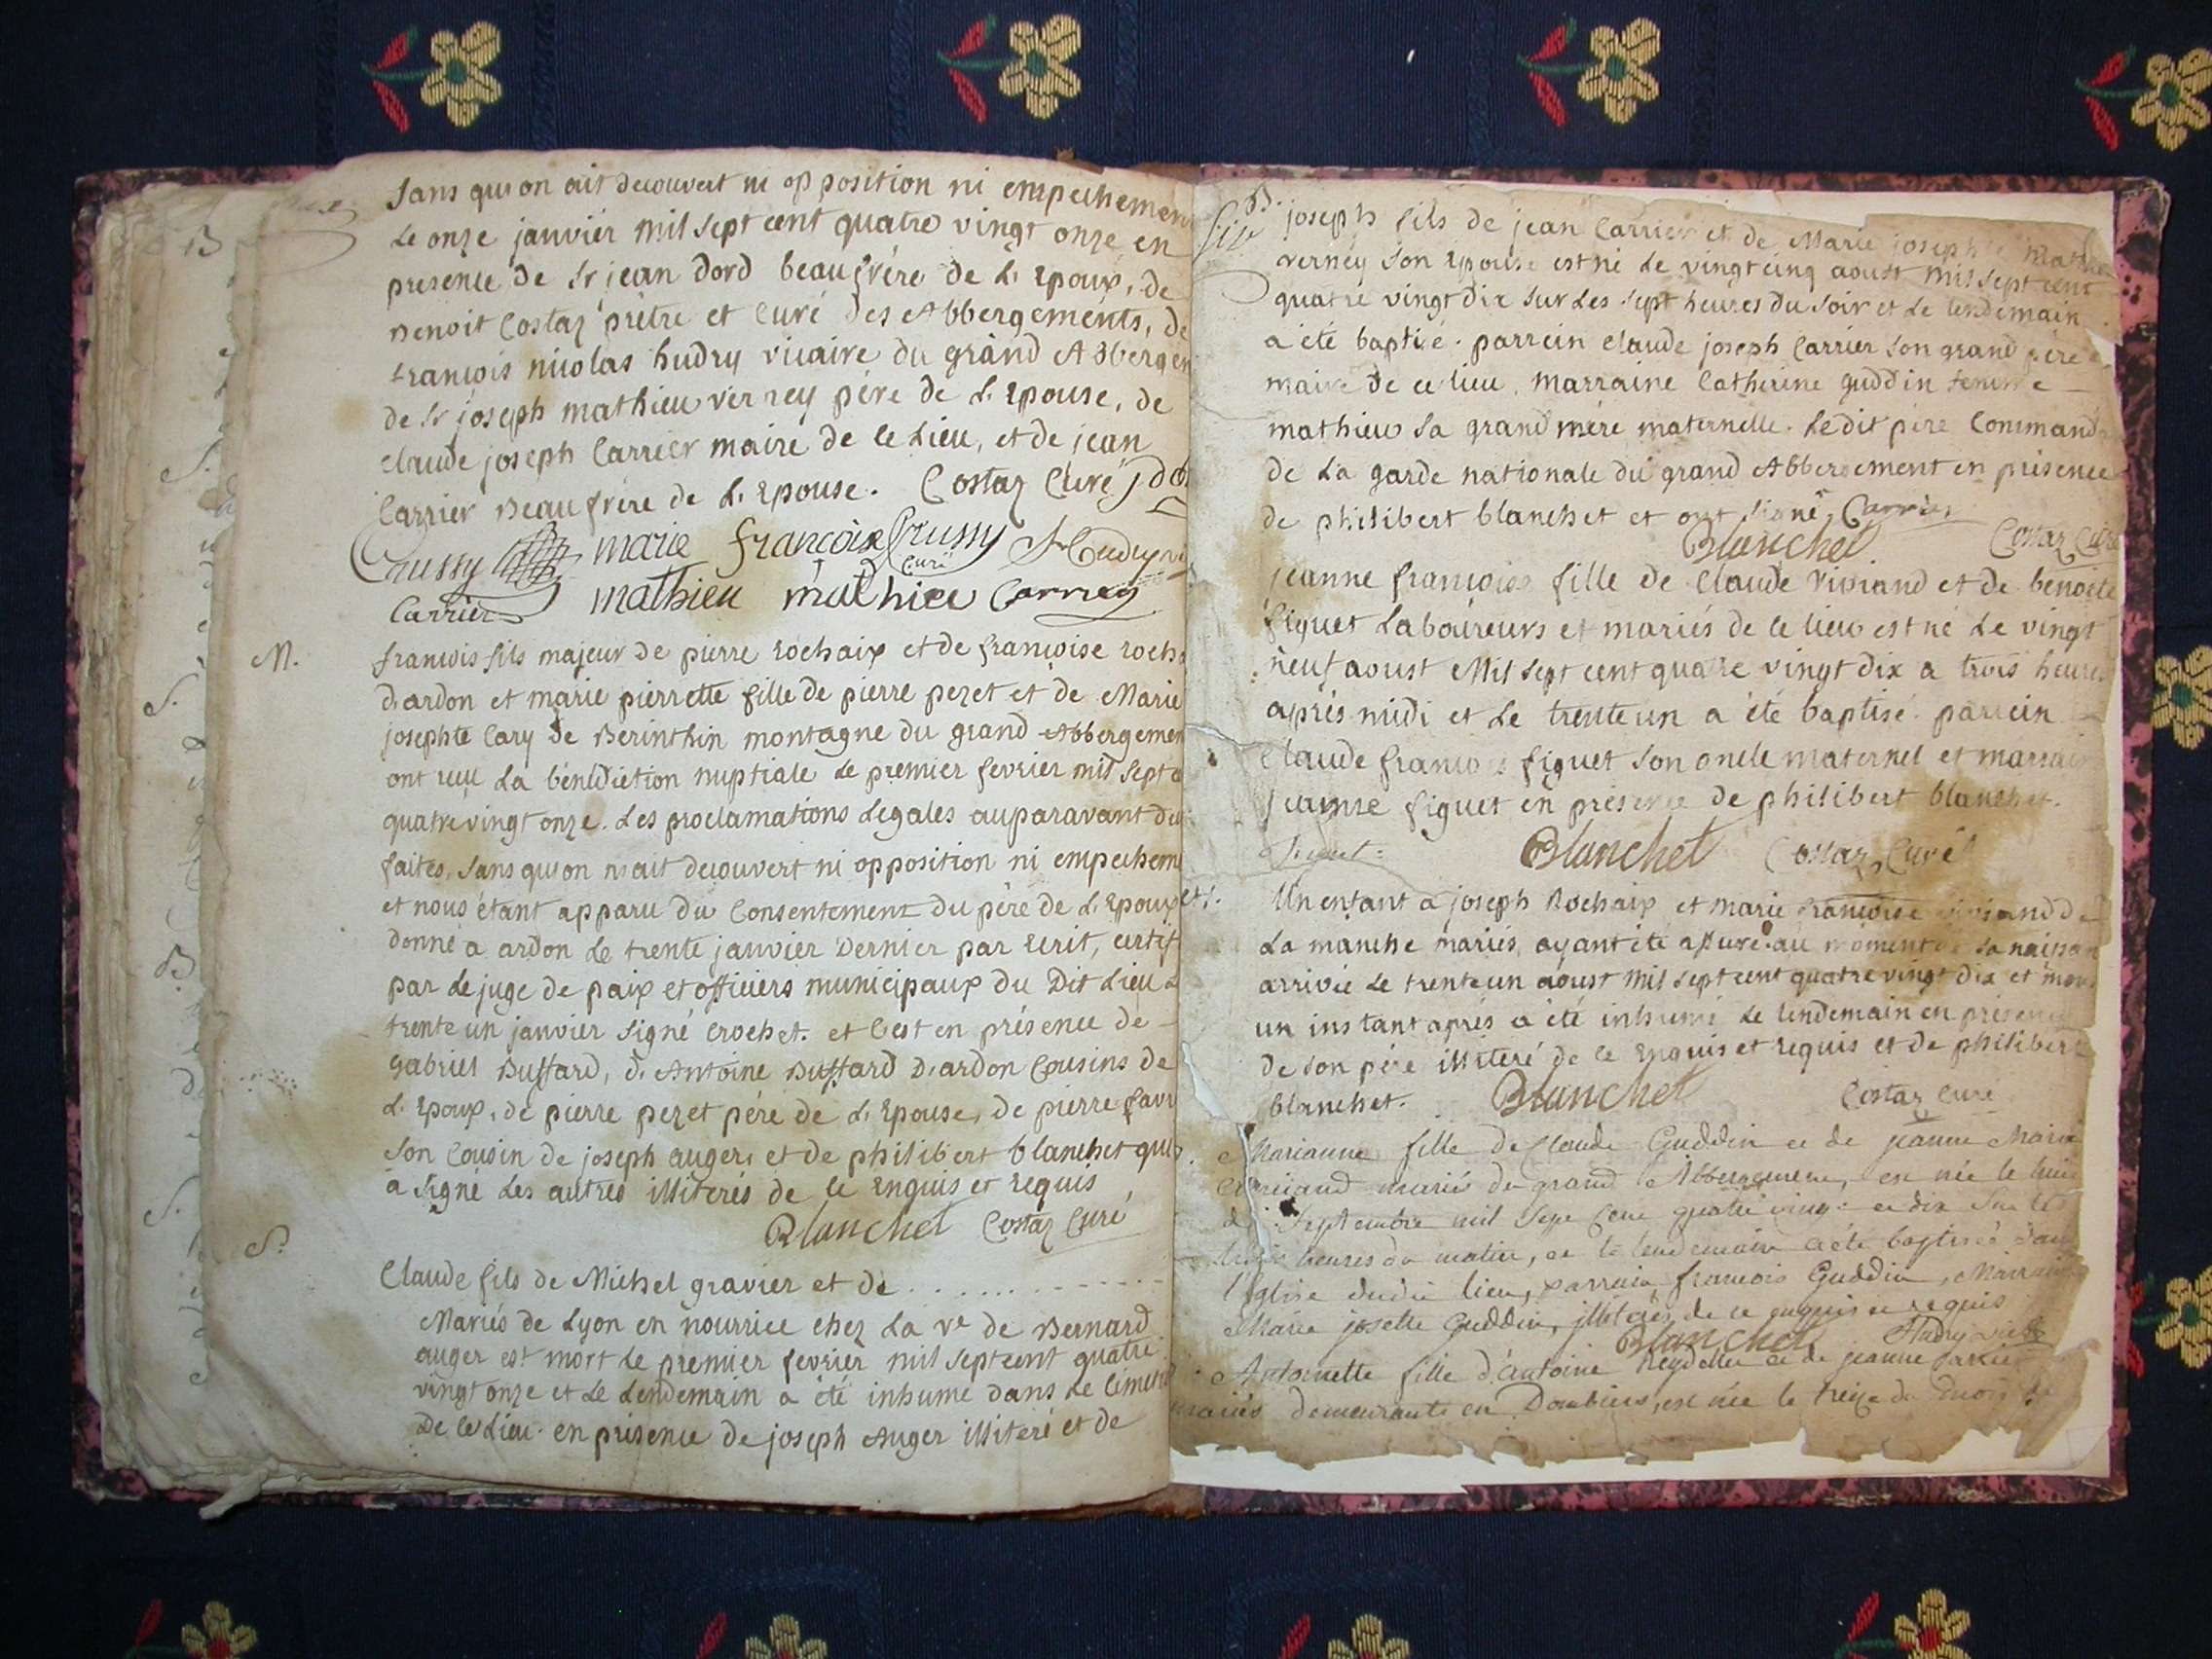 sans qu'on ait decouvert ni opposition ni empechement
Le onze janvier mil sept cent quatre vingt onze en
presence de Sr jean dord beaufrére de L'Epoux, de
Benoit Costaz prêtre et curé des Abbergements, de
francois nicolas hudry vicaire du grand Abbergem
de Sr joseph mathieu verney pére de L'Epouse, de
claude joseph Carrier maire de ce Lieu, et de jean
Carrier Beaufrére de L'Epouse. Costaz Curé
Crussy marie francoise Crussy curé hudry vi
Carrier mathieu mathieu Carrier
M.
francois fils majeur de pierre rochaix et de francoise roch
d'ardon et marie pierrette fille de pierre pezet et de Marie
josephte Cary de Berinthin montagne du grand Abbergemen
ont reçu La bénédiction nuptiale Le premier fevrier mil sept c
quatrevingt onze. Les proclamations Legales auparavant
faites, sans qu'on n'ait decouvert ni opposition ni empechem
et nous étant apparu du Consentement du pére de L'Epoux
donné a ardon Le trente janvier Dernier par Ecrit, certif
par Le juge de paix et officiers municipaux du Dit Lieu L
trente un janvier signé crochet. et C'est en présence de
gabriel Buffard, d'Antoine Buffard D'ardon Cousins de
L'Epoux, de pierre pezet pére de L'Epouse, de pierre favr
son Cousin de joseph auger, et de philibert blanchet qui
a signé Les autres illiterés de ce Enquis et Requis
Blanchet Costaz Curé
S.
Claude fils de Michel gravier et de . . . . . . . .
Mariés de Lyon en nourrice chez La ve de Bernard
auger est mort Le premier fevrier mil septcent quatre
vingt onze et Le Lendemain a été inhumé dans Le Cimeti
De ce Lieu en présence de joseph Auger illiteré et de
B.
joseph fils de jean Carrier et de Marie josephte Mathieu
verney son Epouse est né Le vingt cinq aoust mil sept cent
quatre vingt dix sur Les sept heures du soir et Le lendemain
a été baptisé. parrein claude joseph Carrier son grand pére
maire de ce lieu. marraine Catherine guddin femme
mathieu sa grand mére maternelle. Le dit pére Command
de La garde nationale du grand Abbergement en présence
de philibert blanchet et ont signé, Carrier
Blanchet Costaz Curé
jeanne francoise fille de claude Viviand et de benoite
figuet Laboureurs et mariés de ce lieu est né Le vingt
neuf aoust Mil sept cent quatre vingt dix a trois heures
aprés midi et Le trente un a été baptisé. parrein
Claude francois figuet son oncle maternel et marrain
jeanne figuet en présence de philibert blanchet.
figuet Blanchet Costaz Curé
et S.
Un enfant a joseph Rochaix et marie francoise Viviand de
La manche mariés, ayant été assuré au moment de sa naissan
arrivée Le trente un aoust mil sept cent quatre vingt dix et mor
un instant aprés a été inhumé Le lendemain en présence
de son pére illiteré de ce Enquis et requis et de philibert
blanchet. Blanchet Costaz Curé
Marianne fille de Claude Guddin et de jeanne Marie
mariés du grand Abbergement, est née le huit
de Septembre mil Sept Cent quatre vingt et dix Sur les
heures du matin, et le lendemain a été baptisée dans
l'Eglise dudit lieu, parrain francois Guddin, Marraine
Marie josette Guddin, illiterés de ce enquis et requis
Blanchet Hudry vic
Antoinette fille d'antoine Reydellet et de jeanne
mariés demeurants en Dombiers, est née le treize du mois de